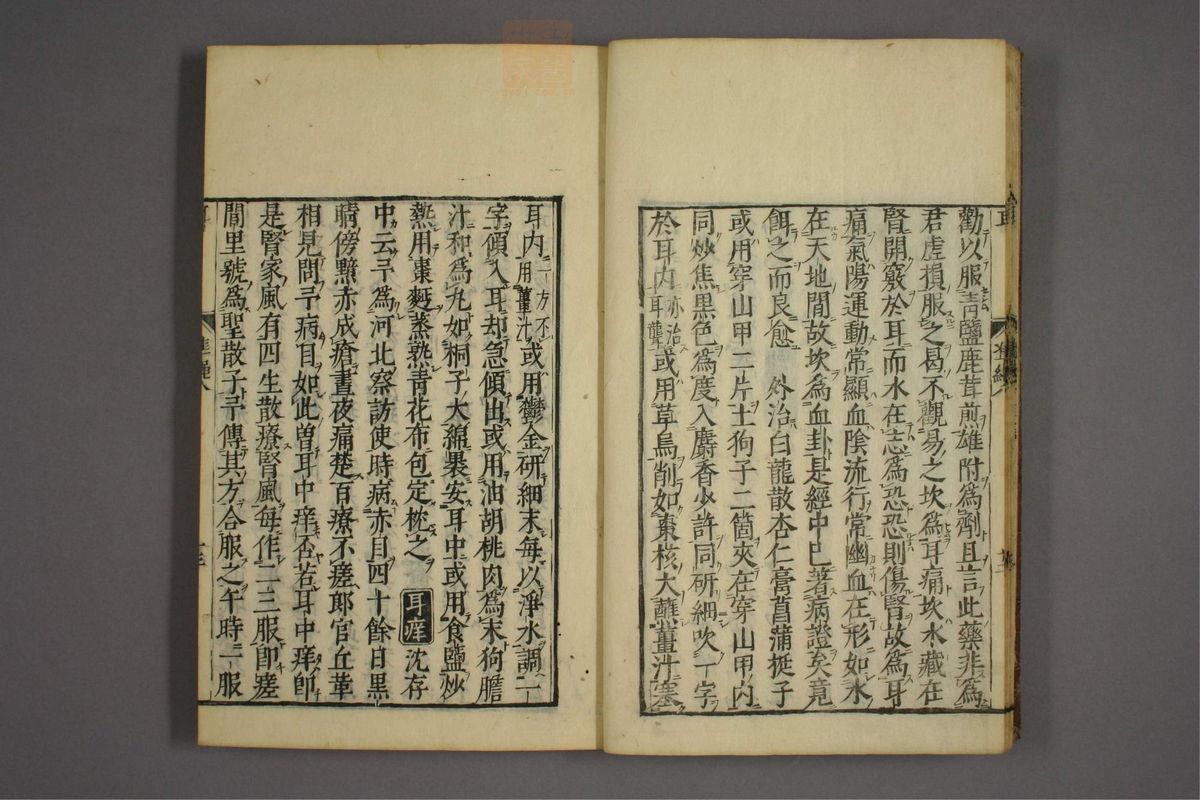 勸以服靑鹽鹿茸煎雄附爲劑且言此藥非爲
君虛損服之曷不觀易之坎爲耳痛坎水藏在
腎開竅於耳而水在志爲恐恐則傷腎故爲耳
痛氣陽運動常顯血陰流行常幽血在形如水
在天地間故坎爲血卦是經中已著病證矣竟
餌之而良愈　外治白龍散杏仁膏菖蒲挺子
或用穿山甲二片土狗子二箇夾在穿山甲内
同炒焦黑色爲度入麝香少許同研細吹一字
於耳内亦治耳聾或用草烏削如棗核大蘸薑汁塞
耳内一方不用薑汁或用鬱金研細末每以淨水調一
字傾入耳却急傾出或用油胡桃肉爲末狗膽
汁和爲丸如桐子大綿褁安耳中或用食鹽炒
熱用棗麪蒸熟靑花布包定枕之　耳痒　沈存
中云予爲河北察訪使時病赤目四十餘日黑
睛傍黯赤成瘡晝夜痛楚百療不瘥郎官丘革
相見問予病目如此曾耳中痒否若耳中痒即
是腎家風有四生散療腎風每作二三服即瘥
閭里號爲聖散子予傳其方合服之午時一服